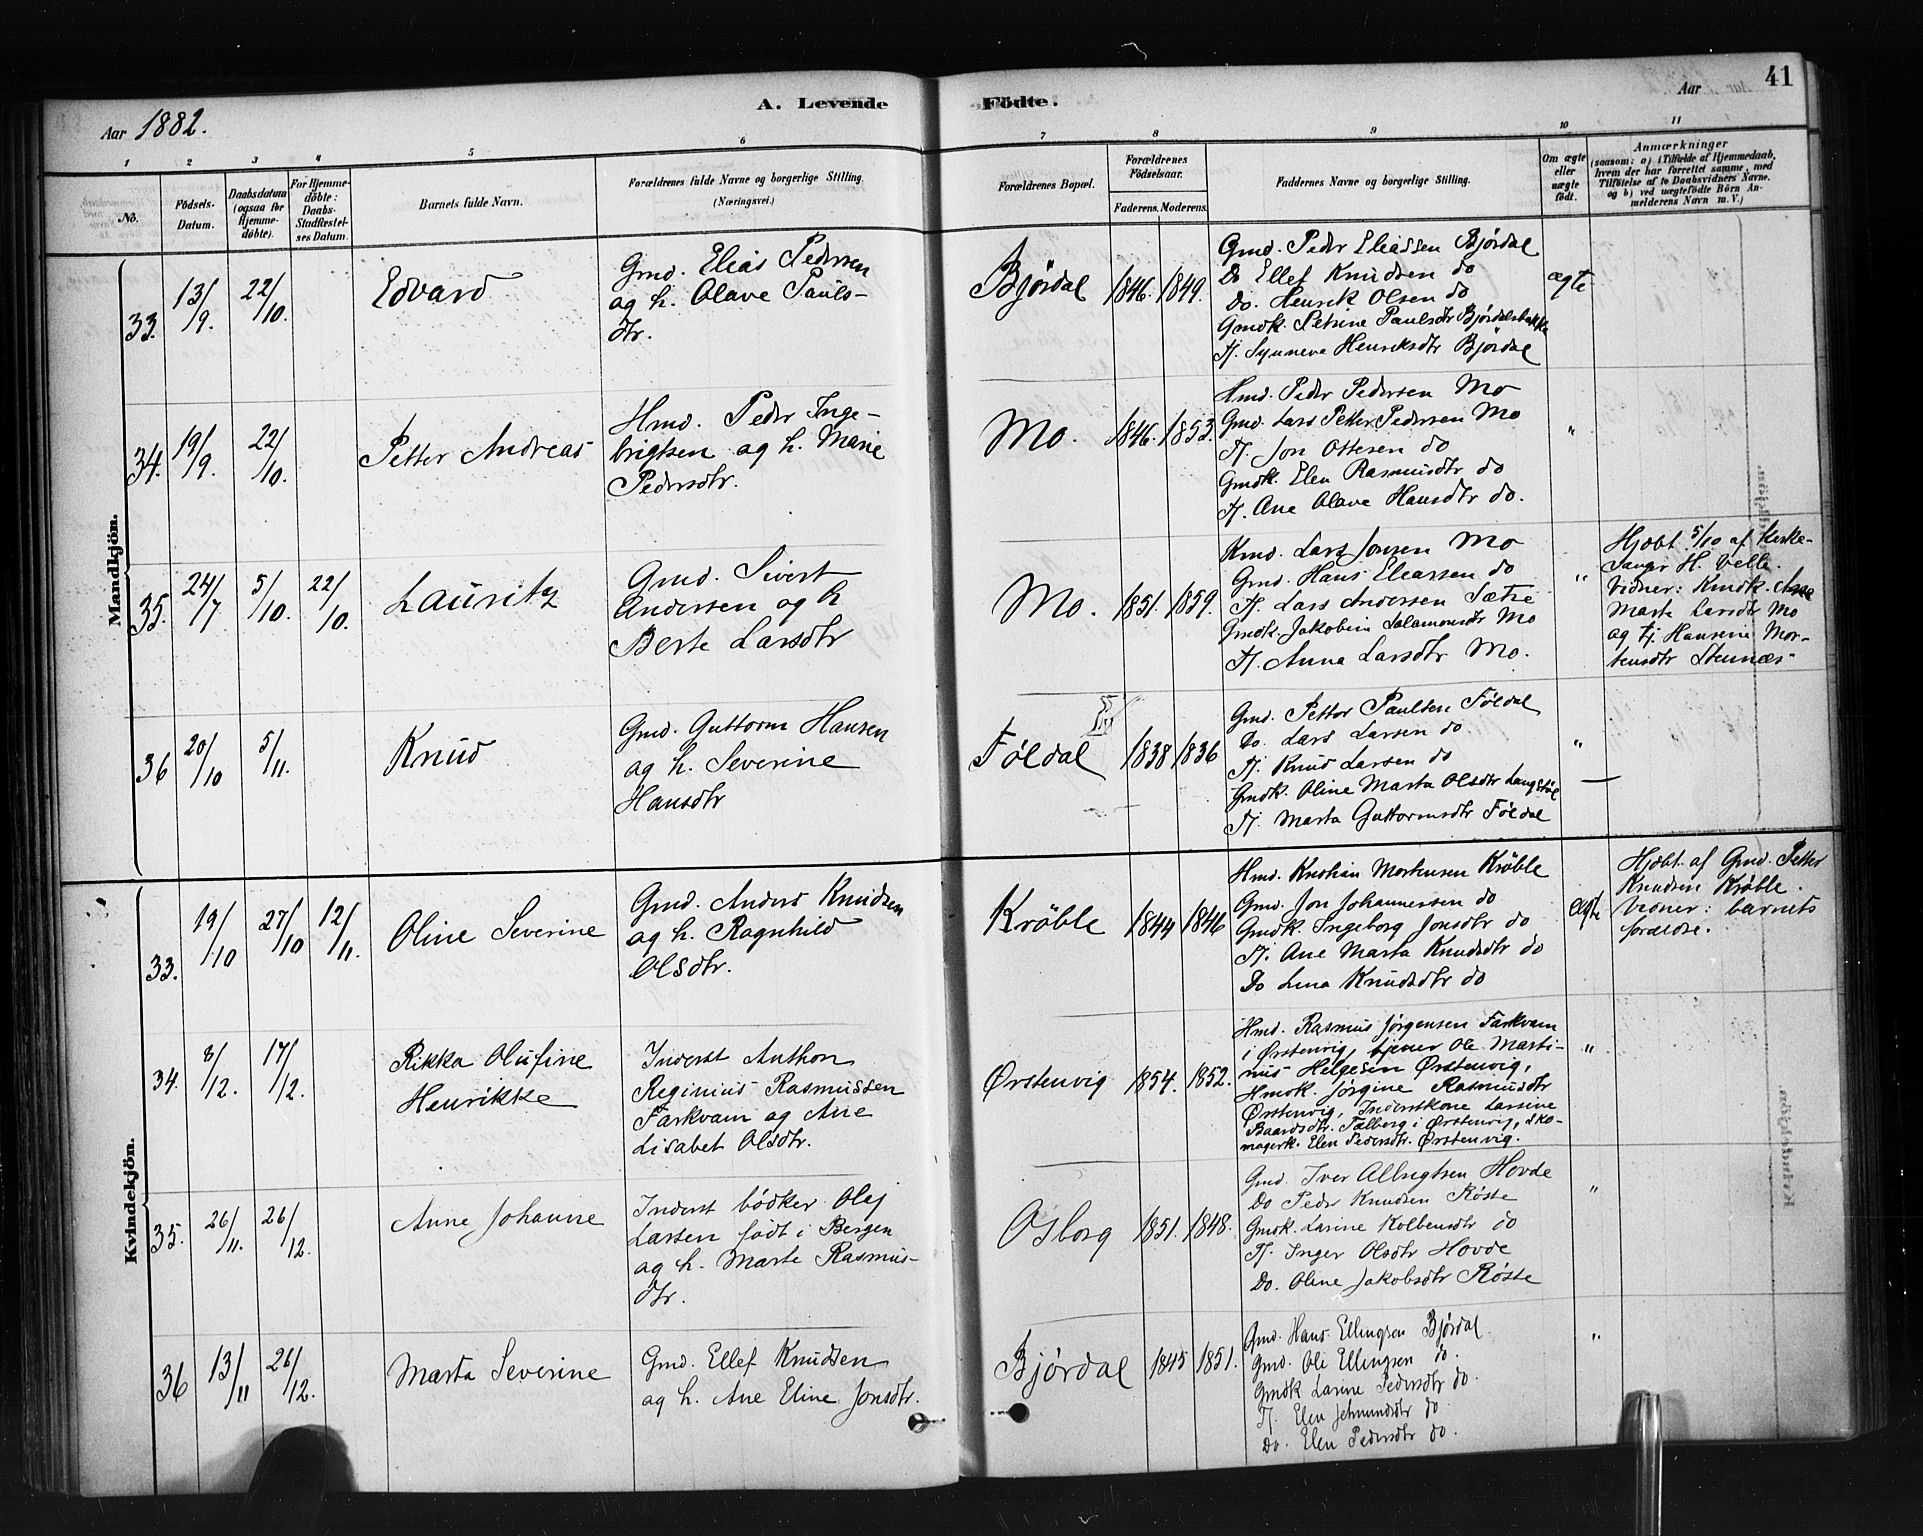 41
A. Levende Födte.
Aar 1882.
Aar
1 2 3 4 5 6 7 8 9 10 11
No.
Födsels-
Datum.
Daabsdatum
(ogsaa for
Hjemme-
döbte).
For Hjemme-
döbte:
Daabs-
Stadfæstel-
ses Datum.
Barnets fulde Navn.
Forældrenes fulde Navne og borgerlige Stilling.
(Næringsvei.)
Forældrenes Bopæl.
Forældrenes
Födselsaar.
Faderens. Moderens.
Faddernes Navne og borgerlige Stilling.
Om ægte
eller
uægte
födt.
Anmærkninger
(saasom: a) i Tilfælde af Hjemmedaab,
hvem der har forrettet samme, med
Tilföielse af to Daabsvidners Navne,
og b) ved uægtefödte Börn An-
melderens Navn m. V.)
Mandkjön.
33. 13/9. 22/10. Edvard
Gmd. Elias Pedersen
og h. Olave Pauls-
dtr.
Bjørdal 1846. 1849.
Gmd. Peder Eliassen Bjørdal
Do Ellef Knudsen do
Do. Henrik Olsen do
Gmdk. Petrine Paulsdtr Bjørdalsbakke
Tj. Synneve Henriksdtr Bjørdal
ægte
34. 19/9. 22/10. Petter Andreas
Hmd. Peder Inge-
brigtsen og h. Marie
Pedersdtr.
Mo. 1846. 1853.
Hmd. Peder Pedersen Mo
Gmd. Lars Petter Pedersen Mo
Tj. Jon Ottesen do
Gmdk. Elen Rasmusdtr do
Tj. Ane Olave Hansdtr do.
"
35. 24/7 5/10. 22/10. Lauritz
Gmd. Sivert
Andersen og h
Berte Larsdtr
Mo. 1851. 1859.
Kmd. Lars Jonsen Mo
Gmd. Hans Eleassen do
Tj. Lars Andersen Sætre
Gmdk. Jakobine Salamonsdtr Mo
Tj. Anna Larsdtr Mo.
"
Hjdbt. 5/10 af Kirke-
sanger H. Velle.
Vidner: Kmdk. Anne
Marte Larsdtr Mo
og tj. Hansine Mor-
tensdtr Stennæs
36 20/10 5/11. Knud
Gmd. Guttorm Hansen
og h. Severine
Hansdtr
Føldal 1838 1836
Gmd. Petter Paulsen Føldal
Do. Lars Larsen do
Tj. Knud Larsen do
Gmdk. Oline Marta Olsdtr Langstøl
Tj. Marta Guttormsdtr Føldal
"
Kvindekjön.
33. 19/10 27/10 12/11. Oline Severine
Gmd. Anders Knudsen
og h. Ragnhild
Olsdtr.
Krøble 1844 1846
Hmd. Kristian Mortensen Krøble
Gmd. Jon Johannessen do
Gmdk. Ingeborg Jonsdtr do
Tj. Ane Marta Knudsdtr do
Do Lina Knudsdtr do
ægte
Hjdbt. af Gmd. Petter
Knudsen Krøble.
Vidner: barnets
forældre.
34. 8/12. 17/12. Rikka Olufine
Henrikke
Inderst Anthon
Reginius Rasmussen
Farkvam og Ane
Lisabet Olsdtr.
Ørstenvig 1854. 1852.
Hmd. Rasmus Jørgensen Farkvam
i Ørstenvig, tjener Ole Marti-
nus Helgesen Ørstenvig,
Hmdk. Jørgine Rasmusdtr
Ørstenvig, Inderstkone Larsine
Baardsdtr. Falberg i Ørstenvig, sko-
magerk. Elen Pedersdtr. Ørstenvig.
"
35. 26/11. 26/12. Anne Johanne
Inderst bødker Olaj
Larsen født i Bergen
og h. Marte Rasmus-
dtr.
Osborg 1851. 1848.
Gmd. Iver Albregtsen Hovde
Do Peder Knudsen Røste
Gmdk. Larine Kolbensdtr do
Tj. Inger Olsdtr Hovde
Do. Oline Jakobsdtr Røste
"
36 13/11 26/12. Marta Severine
Gmd. Ellef Knudsen
og h. Ane Eline Jonsdtr.
Bjørdal 1845 1851.
Gmd. Hans Ellingsen Bjørdal
Gmd. Ole Ellingsen do.
Gmdk Larine Pedersdtr do.
Tj. Elen Jetmundsdtr do
Do. Elen Pedersdtr do.
"